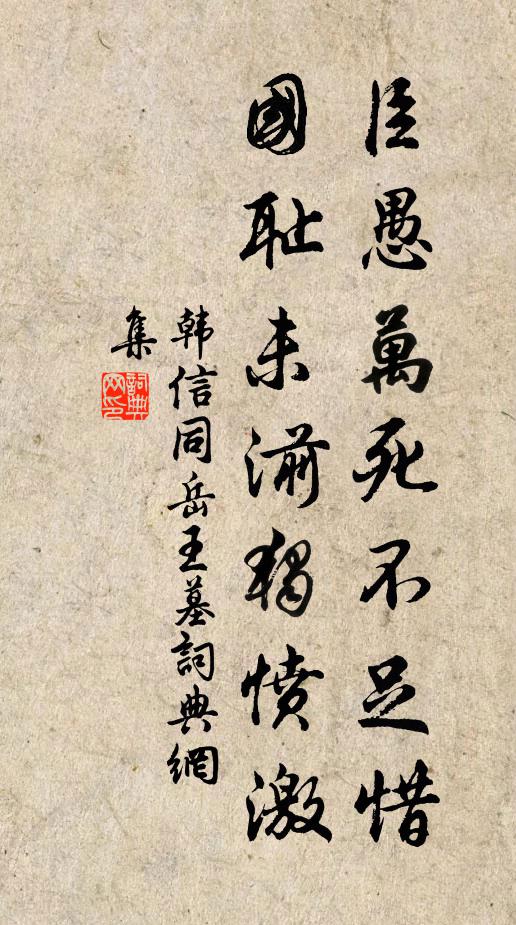 臣愚萬死不足惜
國恥未湔獨憤激
韩信同岳王墓詞典網
集
詞典
网印